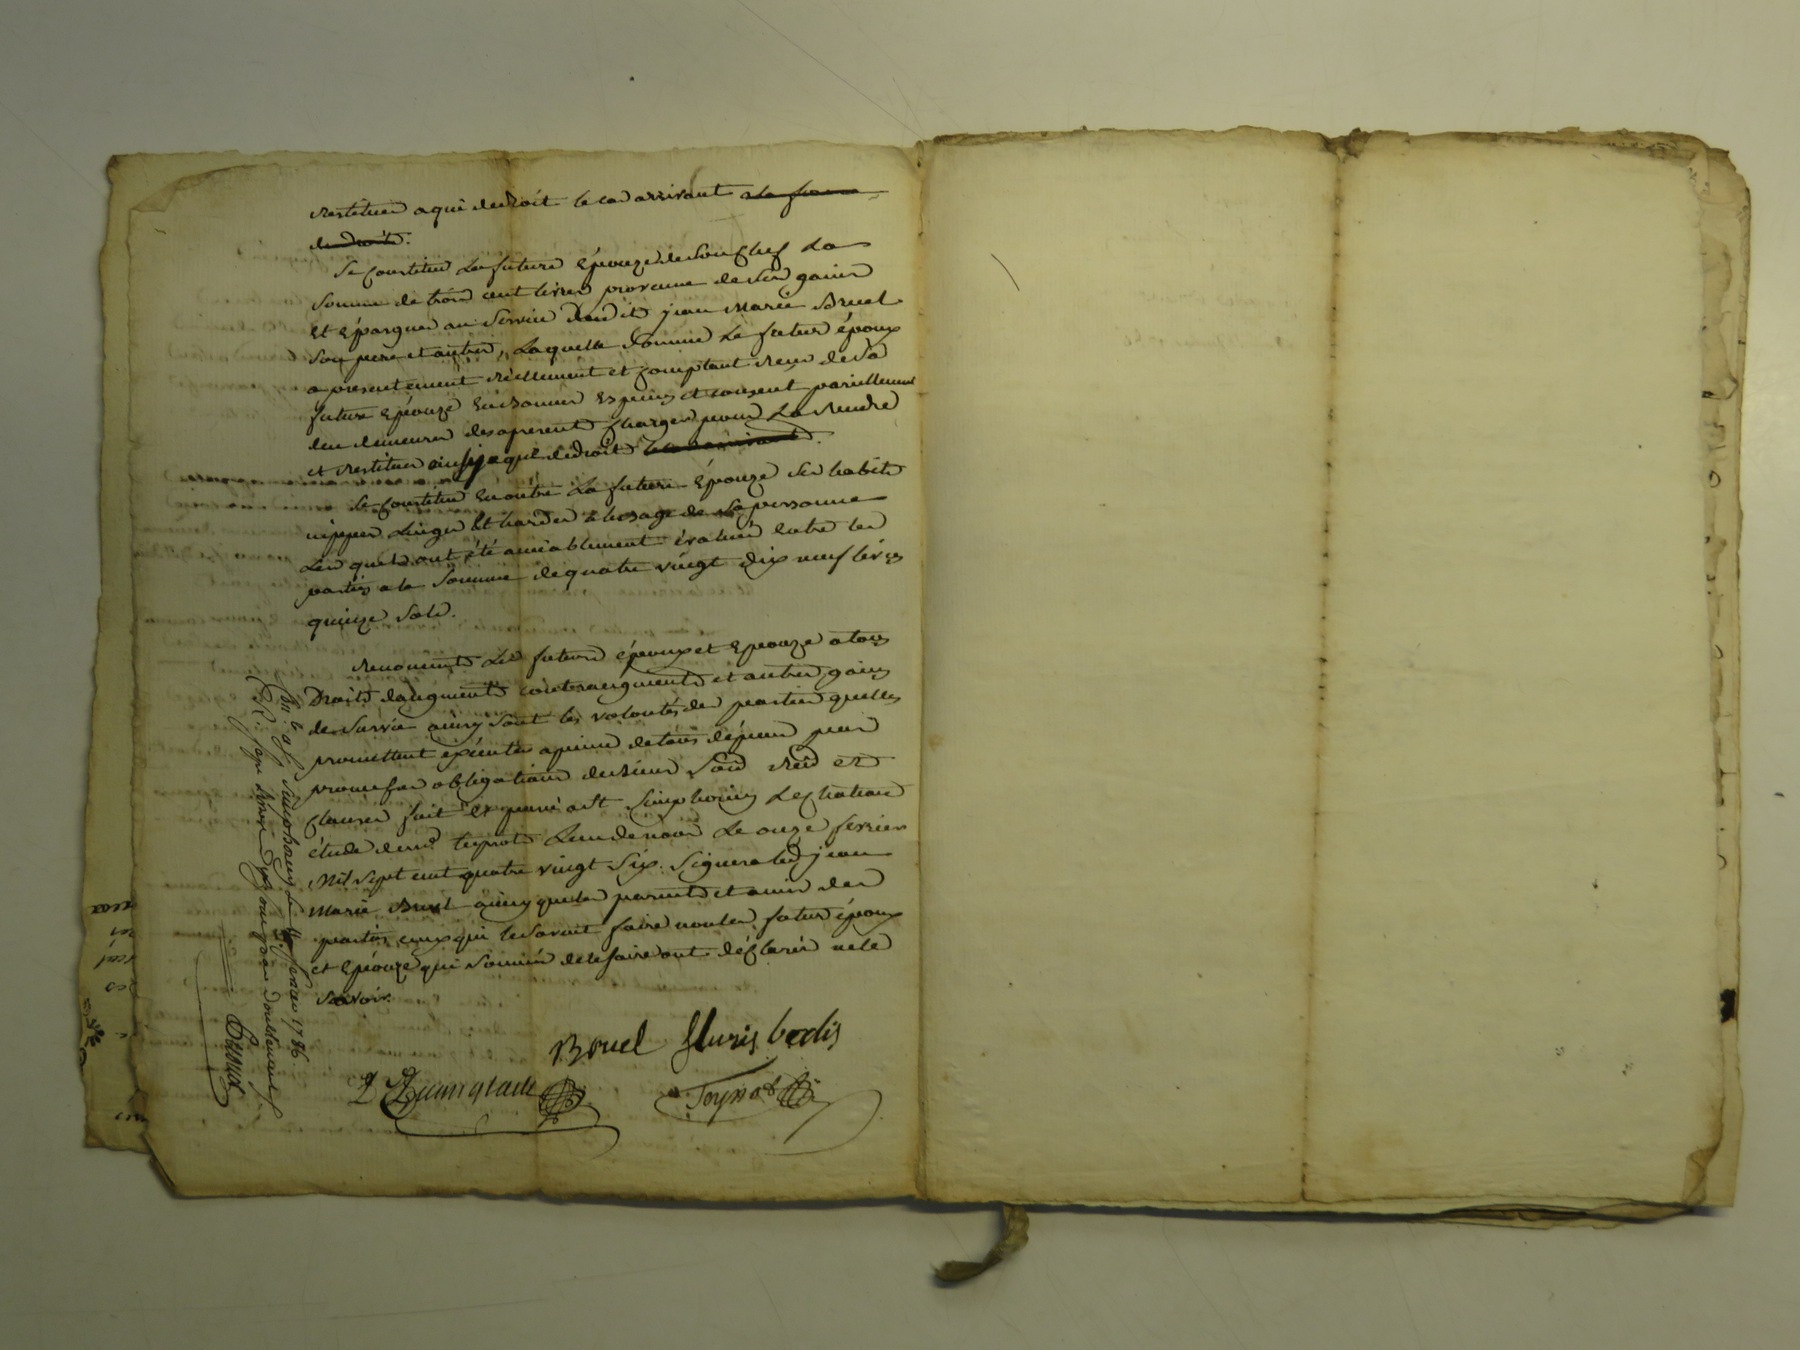 restituer a qui dedroit le cas arrivant
dedroit.
Se constitue La future Epouze de Son chef La
Somme de trois cent livres provenue de Ses gains
Et Epargnes au Service dudit jean Marie Bruel
Son pere et autres, Laquelle Somme Le futur époux
a presentement réellement et comptant reçu de Sa
future Epouze En bonnes Espèces et consent pareillement
den demeurer desapresent chargé pour La rendre
et restituer ainsy a qui dedroit
Se constitue En outre La future Epouze Ses habits
nippes Linges Et hardes a Lusage de Sa personne
Les quels ont été amiablement évalués Entre les
parties a la Somme de quatre vingt dix neuf livres
quinze Sols.
renoncent Les futurs époux et Epouze a tous
Droits daugments contreaugments et autres gains
de Survie ainsy Sont les volontés des parties quelles
promettent exécuter a peine de tous dépens par
promesses obligations de biens Soud Reid et
clauses fait Et passé a St Simphorien Le chateau
étude de me teyssot Lun de nous Le onze fevrier
Mil Sept cent quatre vingt Six. Signera led jean
Marie Bruel ainsy que les parents et amis des
parties, ceux qui le Savent faire non les futurs époux
et Epouze qui Sommés de le faire ont déclaré ne le
Savoir.
Bruel fleuris
Teyssot
Simphorien Le 11 fevrier 1786